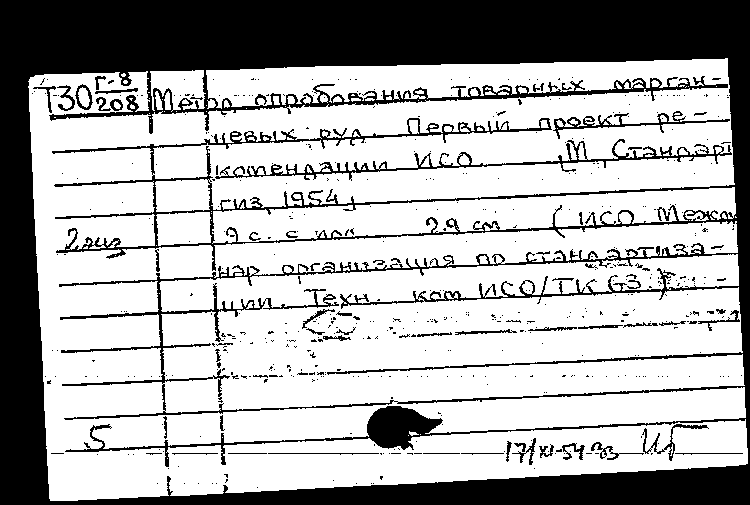 Т30 Г-8/208 Метод опробования товарных марган-
цевых руд. Первый проект ре-
комендации ИСО. [М, Стандарт
гиз, 1954]
2 экз 9 с. с илл. 29 см. (ИСО Межд
нар организация по стандартиза-
ции. Техн. ком ИСО/ТК 63)
5
17/XI-54